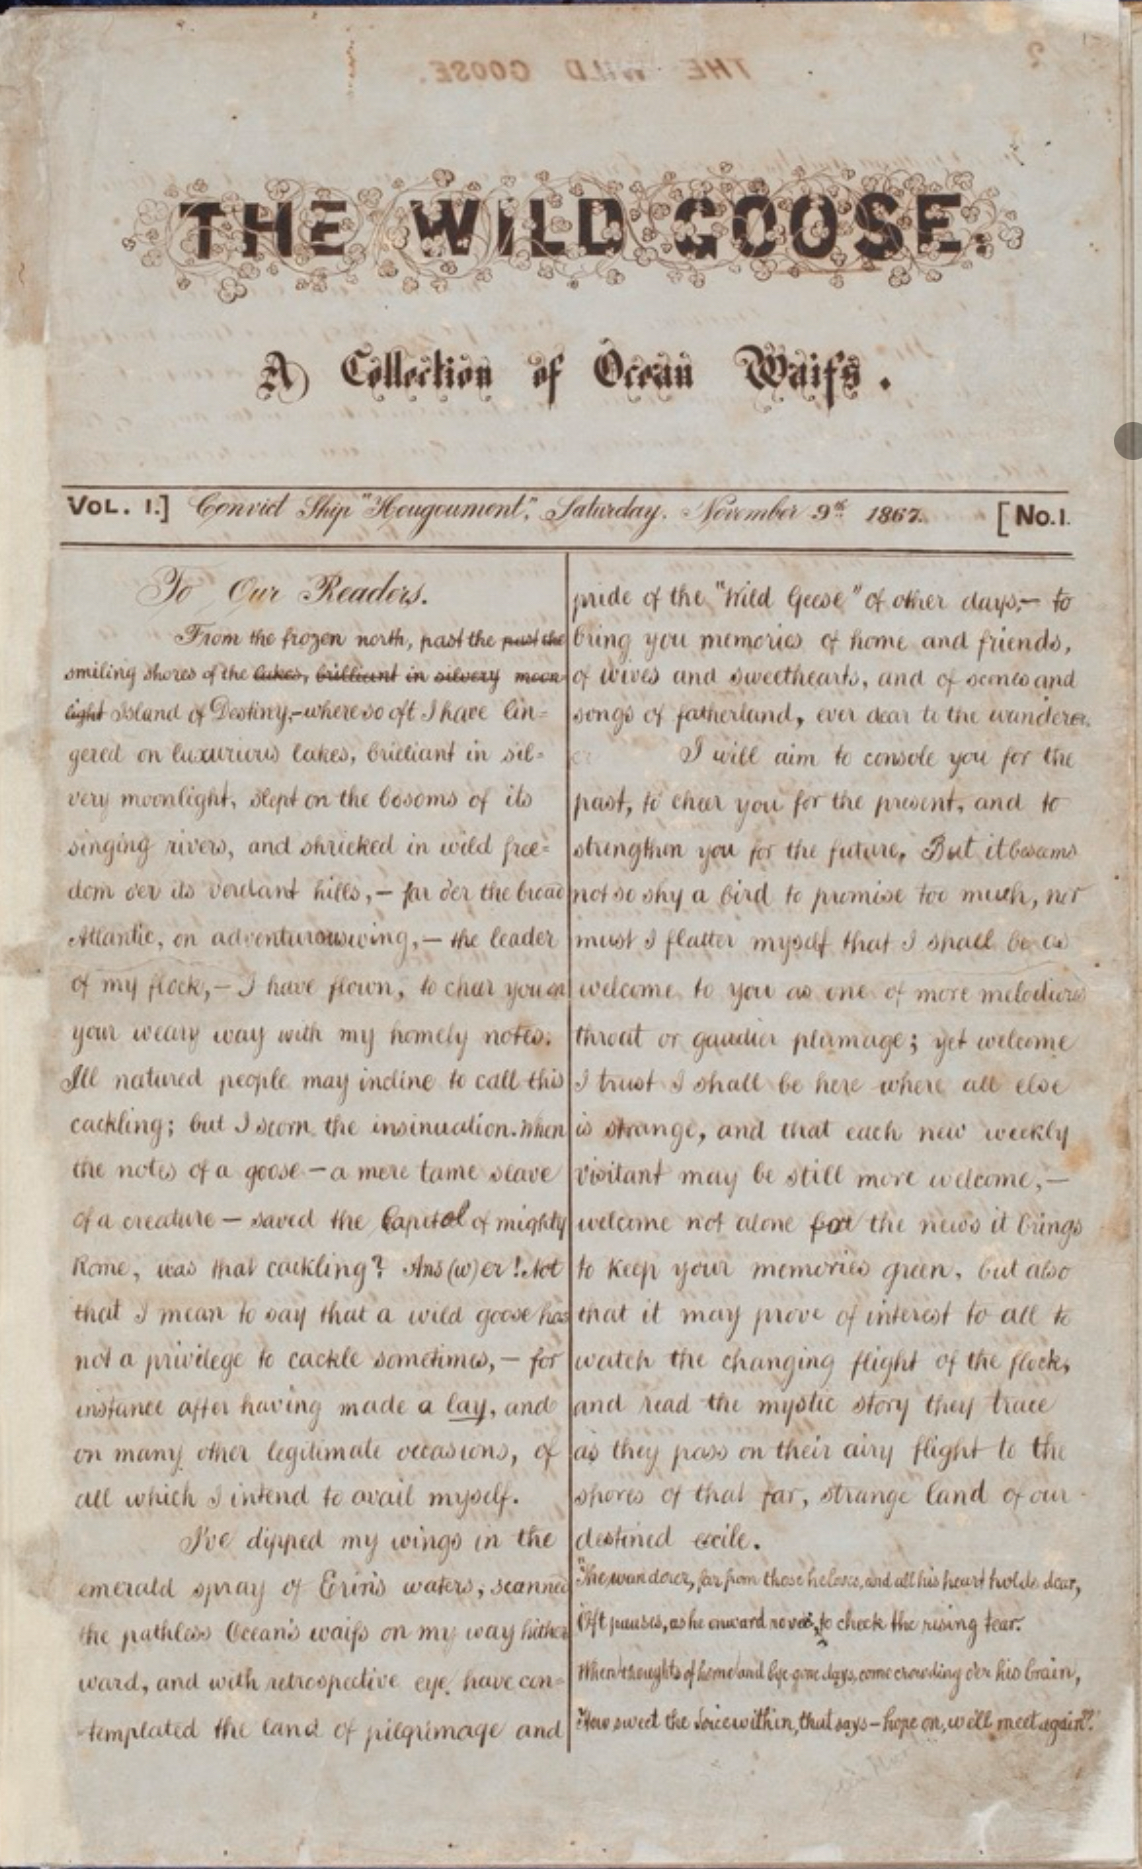 THE WILD GOOSE.
THE WILD GOOSE.
A Collection of Ocean Waifs.
VOL. I.] Convict Ship "Hougoumont", Saturday. November 9th 1867. [No.1.
To Our Readers.
From the frozen north, past the past the
smiling shores of the lakes, brilliant in silvery moon-
light Island of Destiny,-where so oft I have lin=
gered on luxurious lakes, brilliant in sil=
very moonlight, slept on the bosoms of its
singing rivers, and shrieked in wild free=
dom o'er its verdant hills,— far o'er the broad
Atlantic, on adventurous wing,— the leader
of my flock,— I have flown, to cheer you on
your weary way with my homely notes.
Ill natured people may incline to call this
cackling; but I scorn the insinuation. When
the notes of a goose — a mere tame slave
of a creature — saved the Capitol of mighty
Rome, was that cackling? Ans(w)er! Not
that I mean to say that a wild goose has
not a privilege to cackle sometimes,— for
instance after having made a lay, and
on many other legitimate occasions, of
all which I intend to avail myself.
I've dipped my wings in the
emerald spray of Erin's waters, scanned
the pathless Ocean's waifs on my way hither
ward, and with retrospective eye have con=
-templated the land of pilgrimage and
pride of the "Wild Geese" of other days,— to
bring you memories of home and friends,
of wives and sweethearts, and of scenes and
songs of fatherland, ever dear to the wanderer.
I will aim to console you for the
past, to cheer you for the present, and to
strengthen you for the future. But it beseems
not so shy a bird to promise too much, nor
must I flatter myself that I shall be as
welcome to you as one of more melodious
throat or gaudier plumage; yet welcome
I trust I shall be here where all else
is strange, and that each new weekly
visitant may be still more welcome,—
welcome not alone for the news it brings
to keep your memories green, but also
that it may prove of interest to all to
watch the changing flight of the flock,
and read the mystic story they trace
as they pass on their airy flight to the
shores of that far, strange land of our
destined exile.
"The wanderer, far from those he loves, and all his heart holds dear,
Oft pauses, as he onward roves, to check the rising tear.
When thoughts of home and bye-gone days, come crowding o'er his brain,
How sweet the voice within, that says — hope on, we'll meet again".